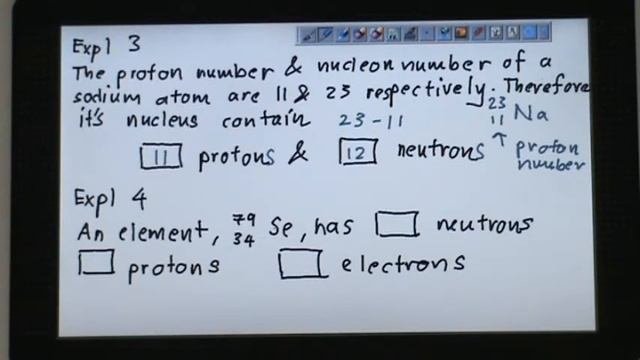 Expl 3
The proton number & nucleon number of a
sodium atom are 11 & 23 respectively. Therefore
it's nucleus contain 23-11 23 11 Na
11 protons & 12 neutrons ↑ proton
number
Expl 4
An element, 79 34 Se, has neutrons
protons electrons